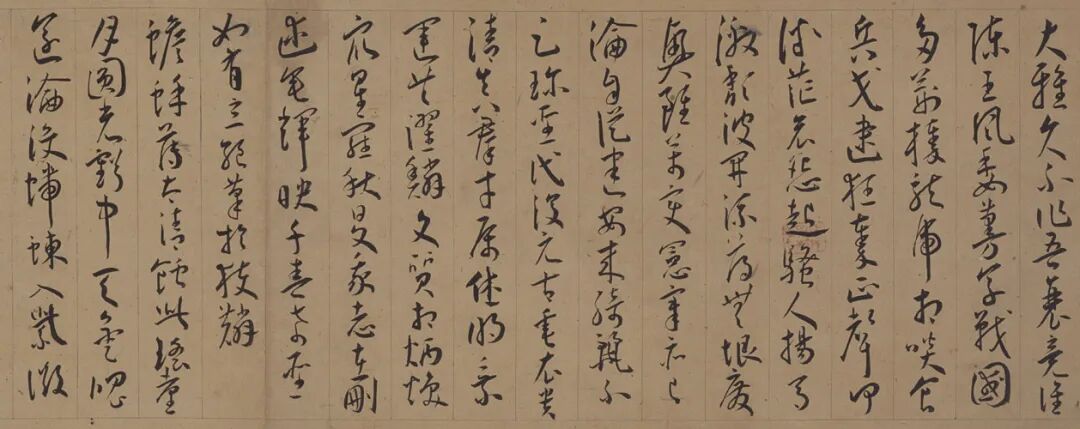 大雅久不作吾衰竟誰
陳王風委蔓草戰國
多荊榛龍虎相啖食
兵戈逮狂秦正聲何
微茫哀怨起騷人揚馬
激頹波開流蕩無垠廢
興雖萬變憲章亦已
淪自從建安來綺麗不
足珍聖代復元古垂衣貴
清真群才屬休明乘
運共躍鱗文質相炳煥
眾星羅秋旻我志在刪
述垂輝映千春希聖
如有立絕筆於獲麟
蟾蜍薄太清蝕此瑤臺
月圓光虧中天金魄
遂淪沒螮蝀入紫微